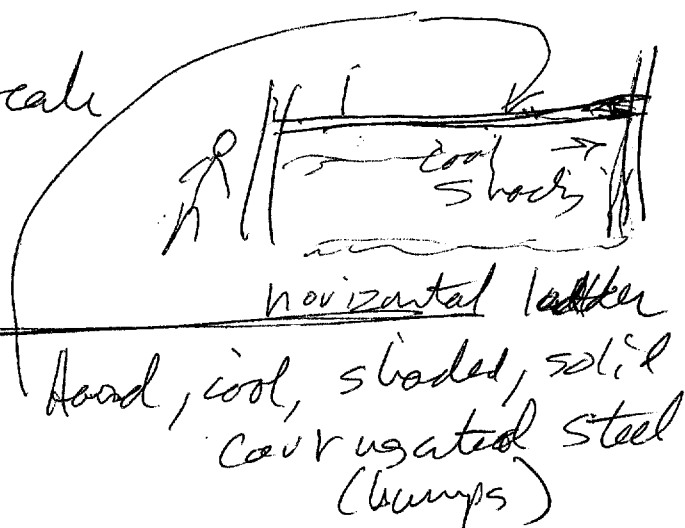 cool
horizontal ladder
Hard, cool, shaded, solid
corrugated steel
(bumps)